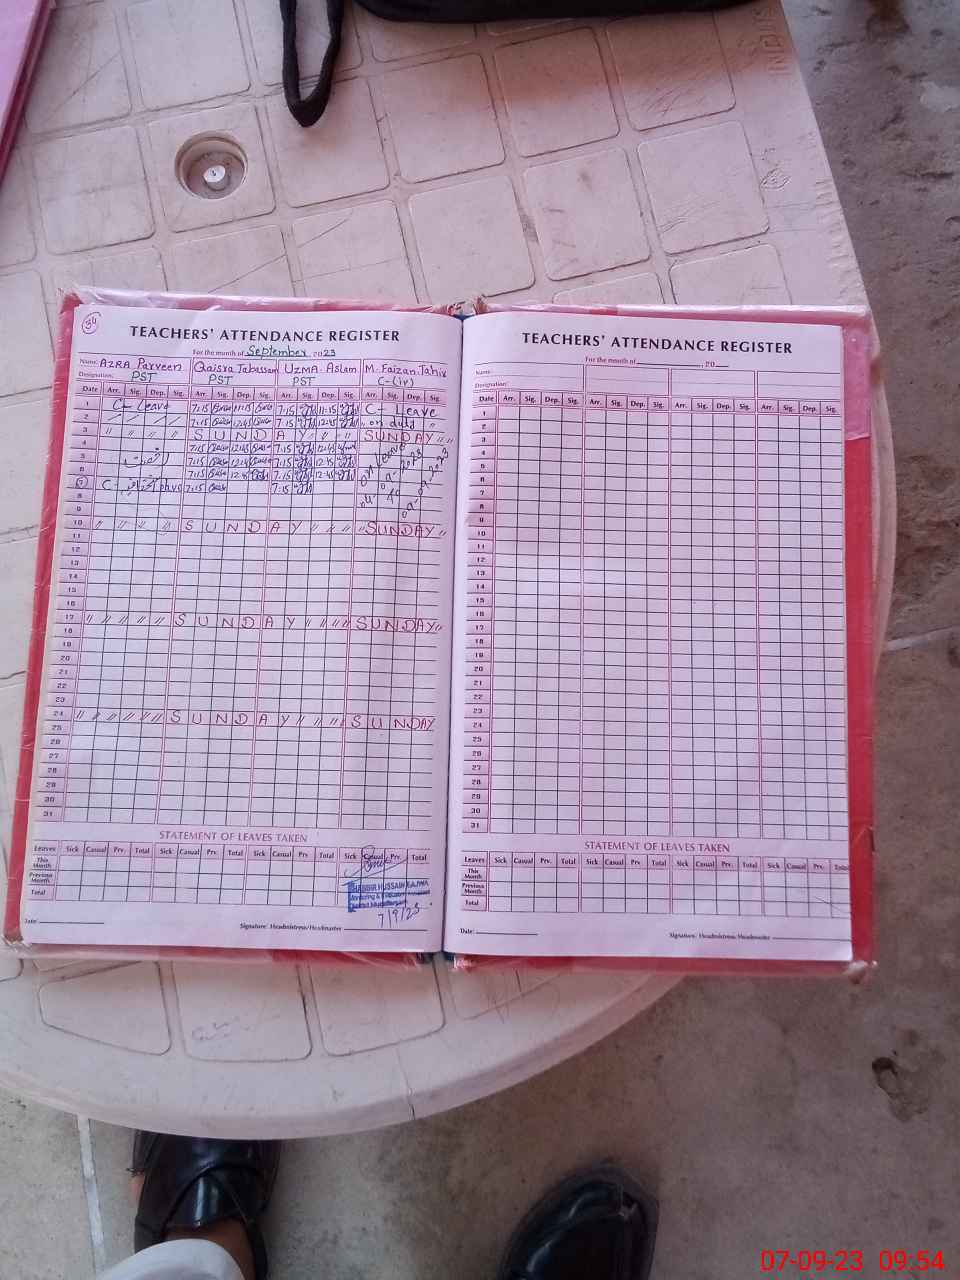 34
TEACHERS' ATTENDANCE REGISTER
For the month of September, 2023
Name: AZRA Parveen Qaisra Tabassam UZMA Aslam M. Faizan Tahir
Designation: PST PST PST C-(iv)
Date Arr. Sig. Dep. Sig. Arr. Sig. Dep. Sig. Arr. Sig. Dep. Sig. Arr. Sig. Dep. Sig.
1 C- Leave 7:15 11:15 7:15 11:15 C- Leave
2 7:15 12:45 7:15 12:45 on duty "
3 " " " " SUNDAY " " " SUNDAY " "
4 7:15 12:45 7:15 12:45 on Leave
5 7:15 12:45 7:15 12:45
6 7:15 12:45 7:15 12:45
7 C- 7:15 7:15
04-09-2023
to
09-09-2023
8
9
10 " " " " SUNDAY " " " "SUNDAY "
11
12
13
14
15
16
17 " " " " " SUNDAY " " " " SUNDAY "
18
19
20
21
22
23
24 " " " " " " SUNDAY " " " " SUNDAY
25
26
27
28
29
30
31
STATEMENT OF LEAVES TAKEN
Leaves Sick Casual Prv. Total Sick Casual Prv. Total Sick Casual Prv. Total Sick Casual Prv. Total
This Month
Previous Month
Total
SHABBIR HUSSAIN BAJWA
Monitoring & Evaluation Assistant
District Muzaffargarh
7/9/23
Date:
Signature: Headmistress/Headmaster
TEACHERS' ATTENDANCE REGISTER
For the month of , 20
Name:
Designation:
Date Arr. Sig. Dep. Sig. Arr. Sig. Dep. Sig. Arr. Sig. Dep. Sig. Arr. Sig. Dep. Sig.
1
2
3
4
5
6
7
8
9
10
11
12
13
14
15
16
17
18
19
20
21
22
23
24
25
26
27
28
29
30
31
STATEMENT OF LEAVES TAKEN
Leaves Sick Casual Prv. Total Sick Casual Prv. Total Sick Casual Prv. Total Sick Casual Prv. Total
This Month
Previous Month
Total
Date:
Signature: Headmistress/Headmaster
07-09-23 09:54